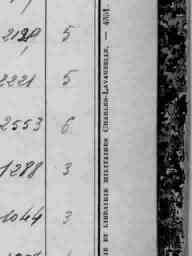 2128 5
2221 5
2553 6
1288 3
1044 3
IE ET LIBRAIRIE MILITAIRES CHARLES-LAVAUZELLE. — 4351.